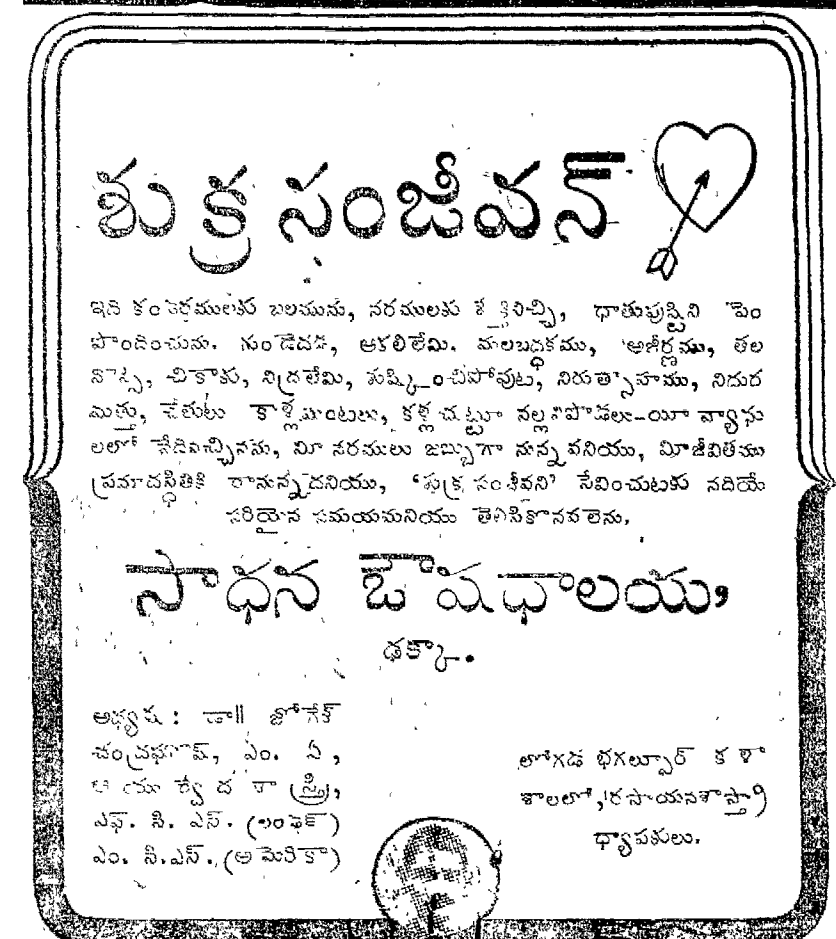 శుక్ర సంజీవన్
ఇది కండరములకు బలమును, నరములకు శక్తినిచ్చి, ధాతుపుష్టిని పెం
పొందించును. గుండెదడ, ఆకలిలేమి. మలబద్ధకము, అజీర్ణము, తల
నొప్పి, చికాకు, నిద్రలేమి, శుష్కించిపోవుట, నిరుత్సాహము, నిదుర
మత్తు, చేతులు కాళ్లమంటలు, కళ్ల చుట్టూ నల్లనిపొడలు-యీ వ్యాను
లలో నేదివచ్చినను, మీ నరములు జబ్బుగా నున్నవనియు, మీజీవితము
ప్రమాదస్థితికి రానున్నదనియు, ‘శుక్ర సంజీవని’ సేవించుటకు నదియే
సరియైన సమయమనియు తెలిసికొనవలెను.
సాధన ఔషధాలయ,
ఢక్కా.
అధ్యక్ష : డా॥ జోగేశ్
చంద్రఘోష్, ఎం. ఏ,
ఆయుర్వేద శాస్త్రి,
ఎఫ్. సి. ఎస్. (లండన్)
ఎం. సి.ఎస్., (అమెరికా)
లోగడ భగల్పూర్ కళా
శాలలో, రసాయనశాస్త్రా
ధ్యాపకులు.